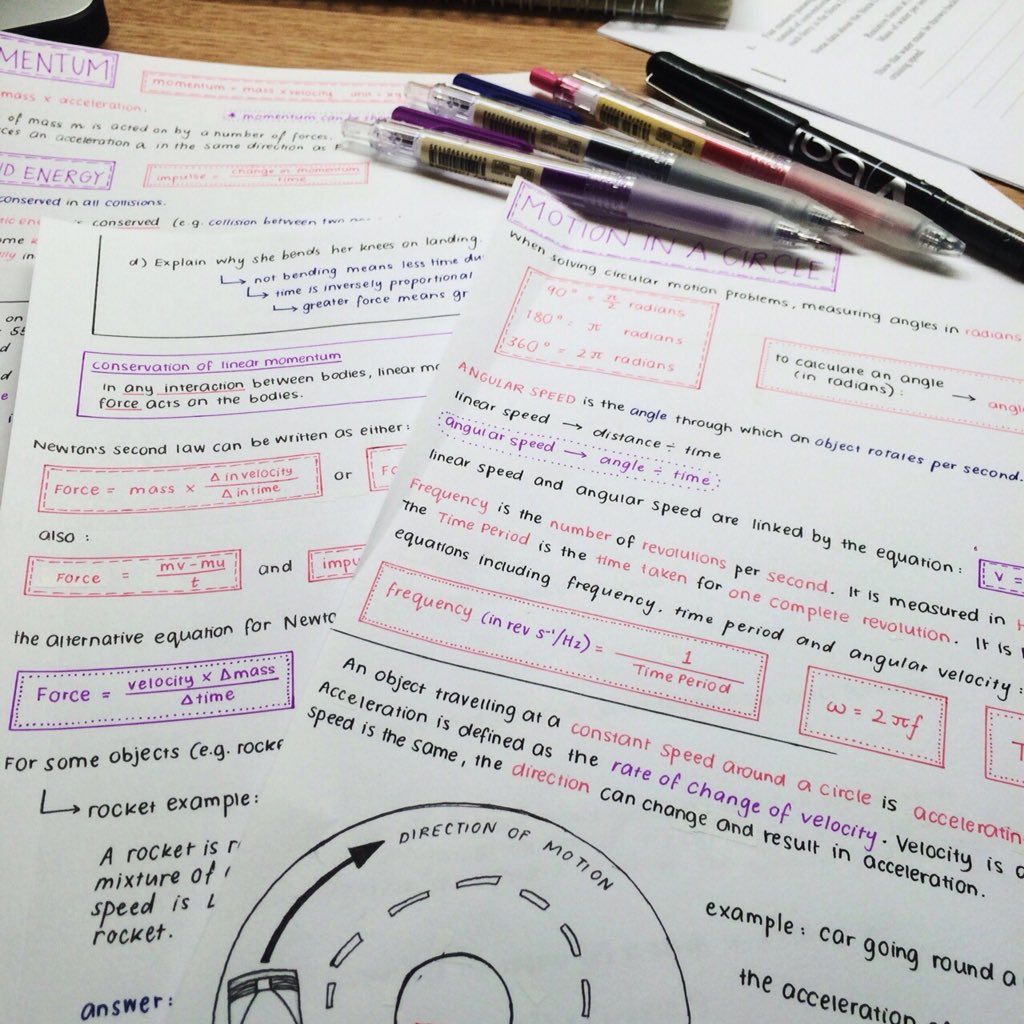 MENTUM
momentum = mass x velocity
mass x acceleration.
* momentum can be
of mass m is acted on by a number of forces.
ces an acceleration a in the same direction as F
D ENERGY
impulse = change in momentum
time
conserved in all collisions.
conserved (e.g. collision between two
d) Explain why she bends her knees on landing.
↳ not bending means less time du
↳ time is inversely proportional
↳ greater force means gr
conservation of linear momentum
in any interaction between bodies, linear mo
force acts on the bodies.
Newton's second law can be written as either:
Force = mass x Δ in velocity
Δ in time
or
Fo
also :
Force = mv - mu
t
and
impu
the alternative equation for Newto
Force = velocity x Δmass
Δtime
For some objects (e.g. rocke
↳ rocket example:
A rocket is r
mixture of
speed is
rocket.
answer:
MOTION IN A CIRCLE
When solving circular motion problems, measuring angles in radians
90° = π/2 radians
180° = π radians
360° = 2π radians
to calculate an angle
(in radians) :
→ angl
ANGULAR SPEED is the angle through which an object rotates per second.
linear speed → distance ÷ time
angular speed → angle ÷ time
linear speed and angular speed are linked by the equation :
v =
Frequency is the number of revolutions per second. It is measured in H
The Time Period is the time taken for one complete revolution. It is
equations including frequency, time period and angular velocity :
frequency (in rev s⁻¹/Hz) = 1
Time Period
ω = 2πf
T
An object travelling at a constant speed around a circle is acceleratin
Acceleration is defined as the rate of change of velocity. Velocity is a
speed is the same, the direction can change and result in acceleration.
DIRECTION OF MOTION
example : car going round a
the acceleration